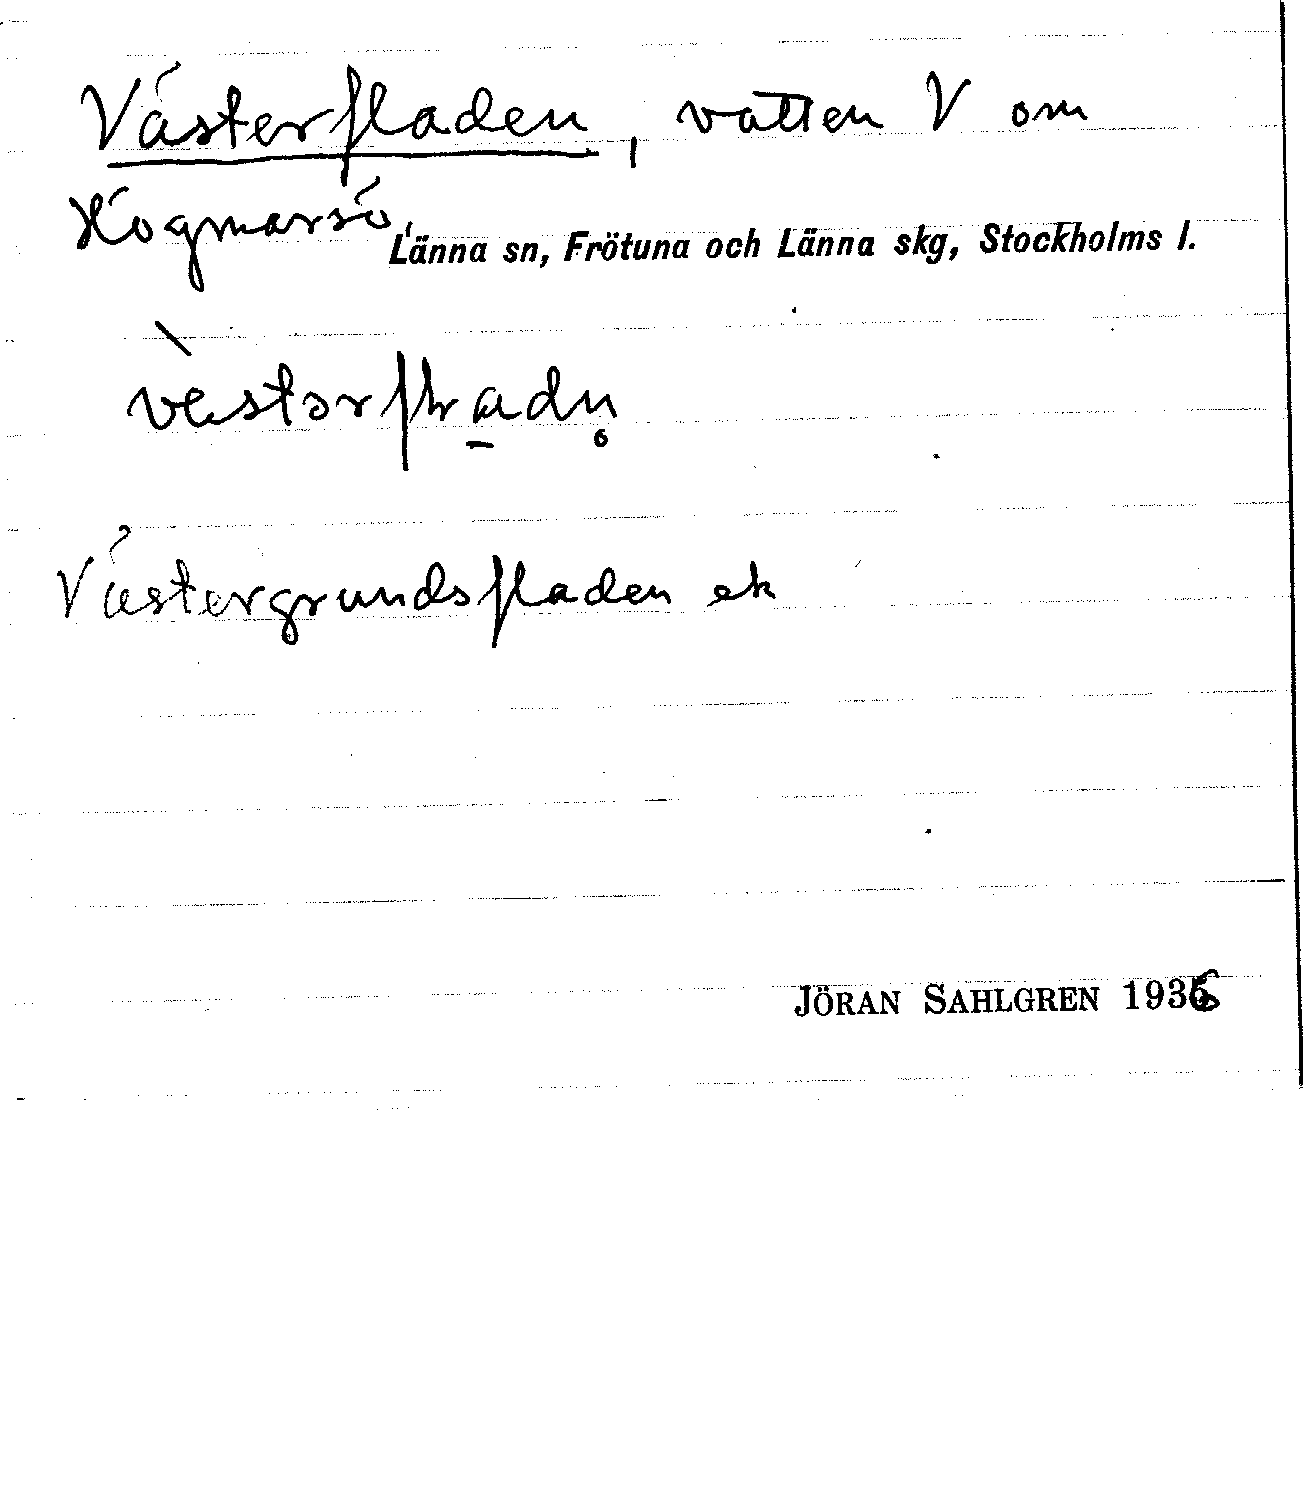 Västerfladen, vatten V om
Kogmarsö,
Länna sn, Frötuna och Länna skg, Stockholms l.
Västergrundsfladen ek
JÖRAN SAHLGREN 1936